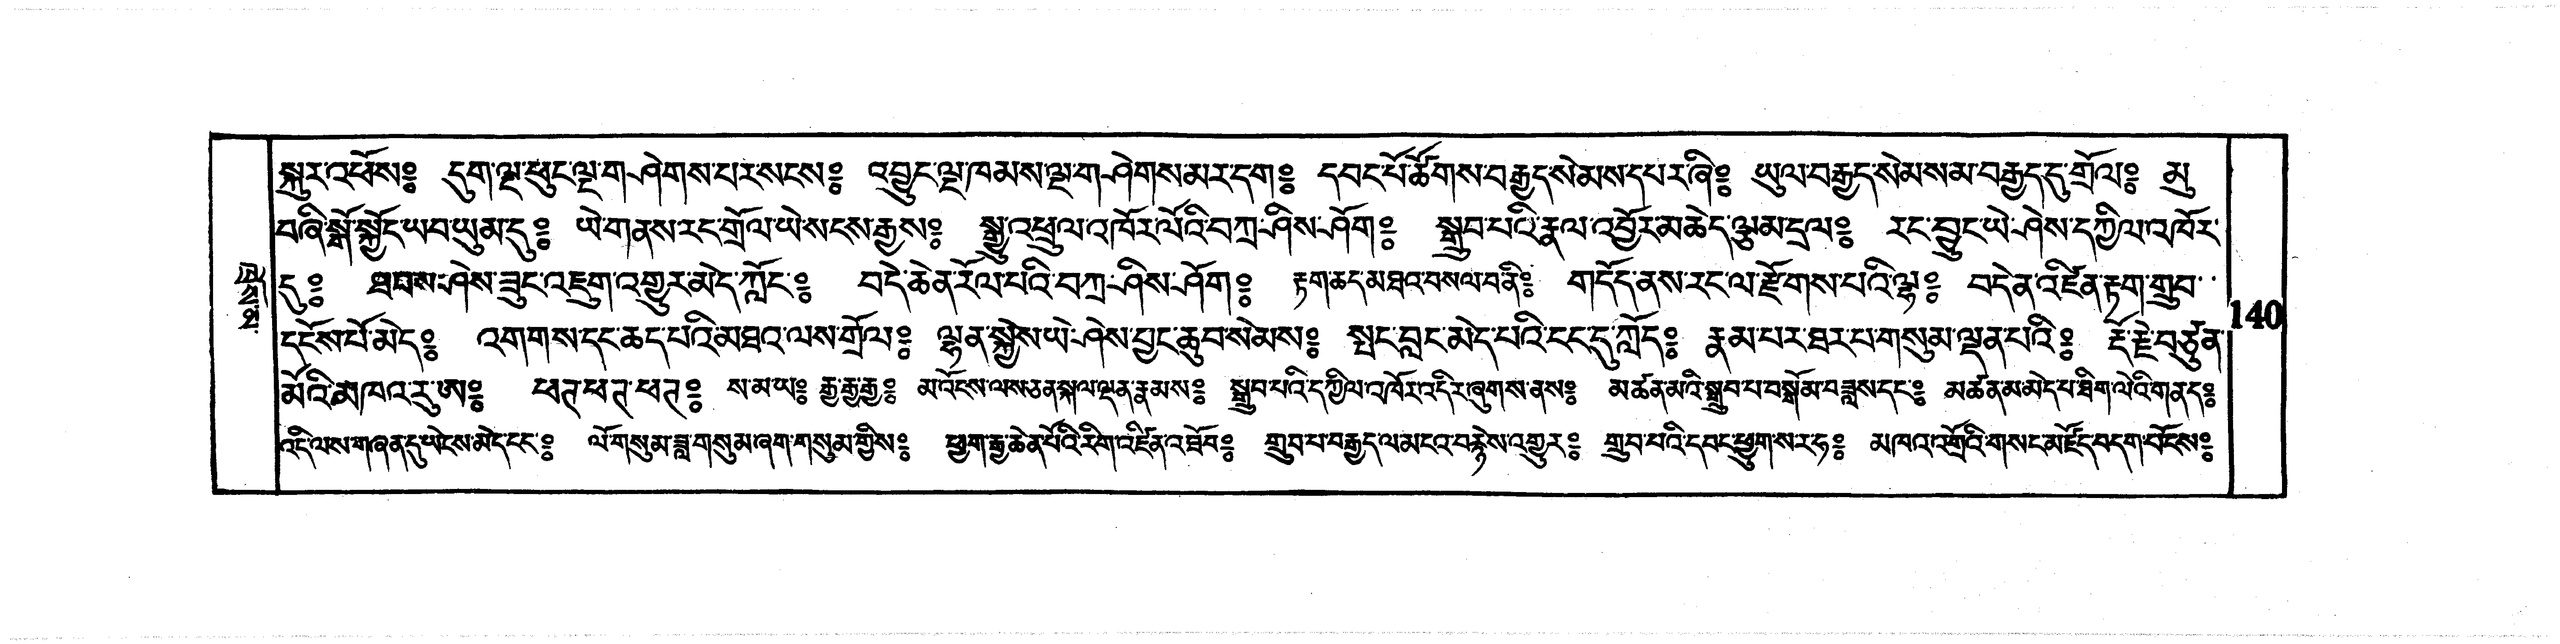 སྐུར་འཕོས༔ དུག་ལྔ་ཕུང་ལྔ་ག་ཤེགས་པར་སངས༔ འབྱུང་ལྔ་ཁམས་ལྔ་ག་ཤེགས་མར་དག༔ དབང་པོ་ཚོགས་བརྒྱད་སེམས་དཔར་ཞི༔ ཡུལ་བརྒྱད་སེམས་མ་བརྒྱད་དུ་གྲོལ༔ མུ
བཞི་སྒོ་སྐྱོང་ཡབ་ཡུམ་དུ༔ ཡེ་གནས་རང་གྲོལ་ཡེ་སངས་རྒྱས༔ སྒྱུ་འཕྲུལ་འཁོར་ལོའི་བཀྲ་ཤིས་ཤོག༔ སྒྲུབ་པའི་རྣལ་འབྱོར་མཆེད་ལྕམ་དྲལ༔ རང་བྱུང་ཡེ་ཤེས་དཀྱིལ་འཁོར་
དུ༔ ཐབས་ཤེས་ཟུང་འཇུག་འགྱུར་མེད་ཀློང༔ བདེ་ཆེན་རོལ་པའི་བཀྲ་ཤིས་ཤོག༔ རྟག་ཆད་མཐའ་བསལ་བནི༔ གདོད་ནས་རང་ལ་རྫོགས་པའི་ལྷ༔ བདེན་འཛིན་རྟག་གྲུབ་
དངོས་པོ་མེད༔ འགགས་དང་ཆད་པའི་མཐའ་ལས་གྲོལ༔ ལྷན་སྐྱེས་ཡེ་ཤེས་བྱང་ཆུབ་སེམས༔ སྤང་བླང་མེད་པའི་ངང་དུ་ཀློད༔ རྣམ་པར་ཐར་པ་གསུམ་ལྡན་པའི༔ རྡོ་རྗེ་བཙུན་
མོའི་མཁའ་རུ་ཨ༔ ཕཊ་ཕཊ་ཕཊ༔ ས་མ་ཡ༔ རྒྱ་རྒྱ་རྒྱ༔ མ་འོངས་ལས་ཅན་སྐལ་ལྡན་རྣམས༔ སྒྲུབ་པའི་དཀྱིལ་འཁོར་འདིར་ཞུགས་ནས༔ མཚན་མའི་སྒྲུབ་པ་བསྒོམ་བཟླས་དང༔ མཚན་མ་མེད་པ་ཐིག་ལེའི་གནད༔
འདི་ལས་གཞན་དུ་ཡེངས་མེད་ངང༔ ལོ་གསུམ་ཟླ་གསུམ་ཞག་གསུམ་གྱིས༔ ཕྱག་རྒྱ་ཆེན་པོའི་རིག་འཛིན་འཐོབ༔ གྲུབ་པ་བརྒྱད་ལ་མངའ་བརྙེས་འགྱུར༔ གྲུབ་པའི་དབང་ཕྱུག་ས་ར་ཧ༔ མཁའ་འགྲོའི་གསང་མཛོད་བདག་པོངས༔
140